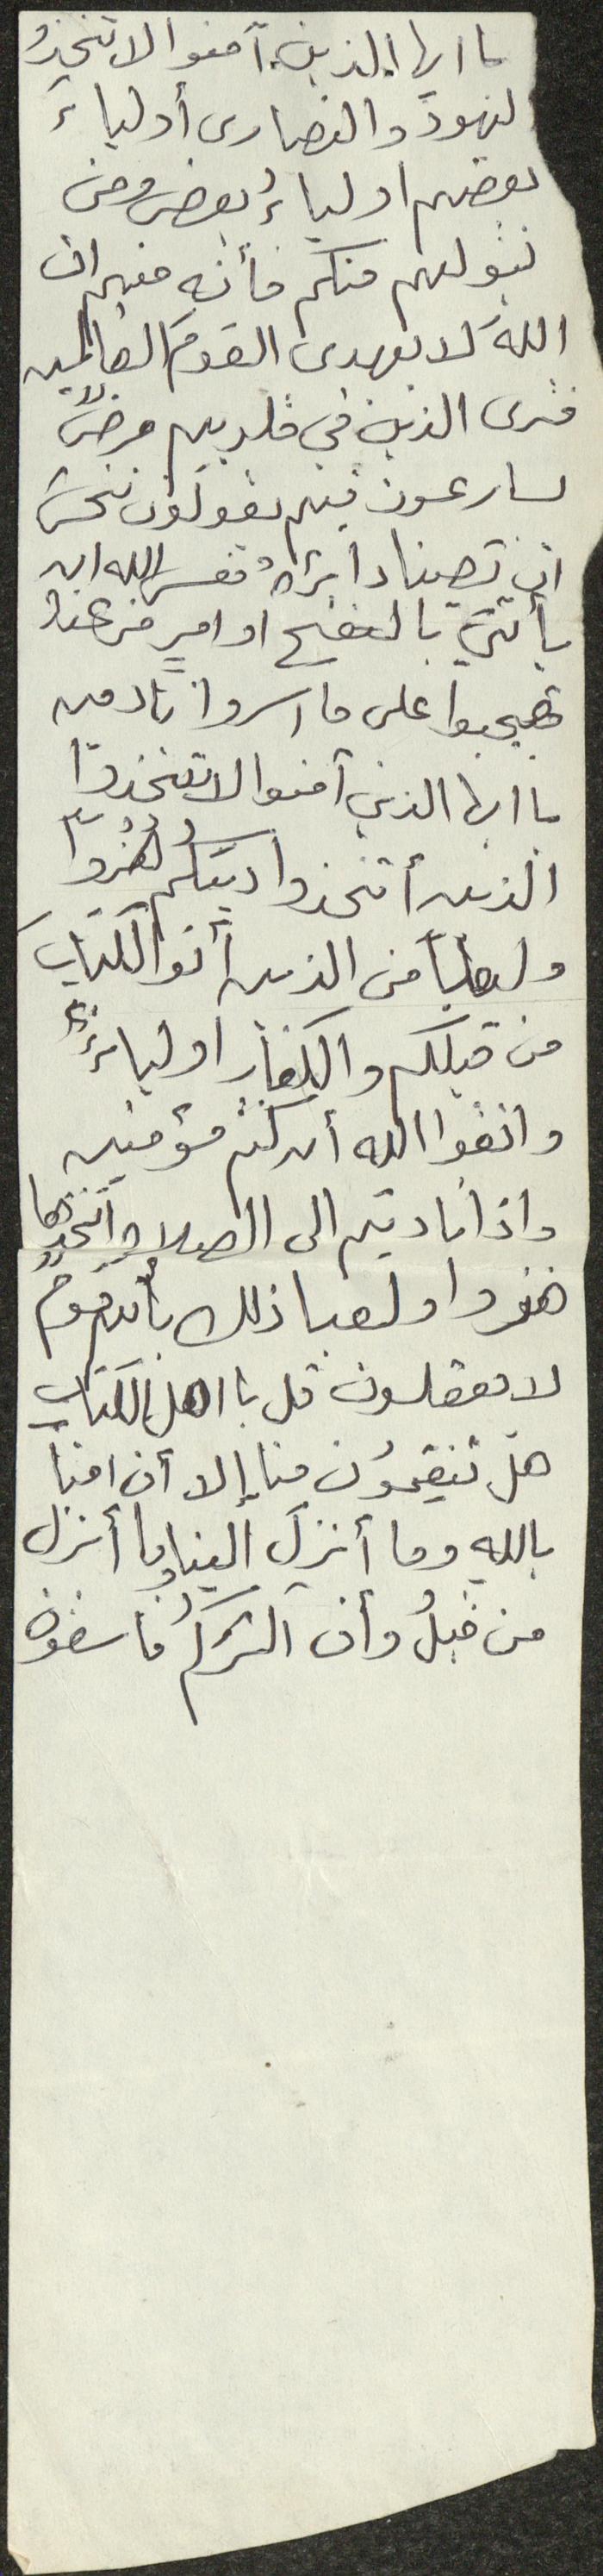 يا ايها الذين آمنوا لا تتخذو
ليهود والنصارى أولياء
بعضهم اولياءُ بعض ومن
يتولهم منكم فأنه منهم ان
اللهَ لا يهدى القومَ الظالمين
فترى الذين في قلوبهم مرضٌ
يسارعون فيهم يقولون نخشى
ان تصيبنا دائرةٌ فعسى الله ان
يأتيَ بالفتح او امرٍ من عنده
فيصبحوا على ما اسروا نادمين
يا ايها الذين آمنوا لا تتخذوا
الذين أتخذوا دينكم هُزُواً
ولعباً من الذين أتوا الكتابَ
من قبلكم والكفار اولياءَ
واتقوا الله أن كنتم مؤمنين
واذا ناديتم الى الصلاة أتخذوها
هزوا ولعبا ذلك بأنهم قومٌ
لا يعقلون قل يا اهل الكتاب
هل تنقمون منا إلا أن امنا
بالله وما أنزلَ الينا وما أنزل
من قبلُ وأن اكثركم فاسقون